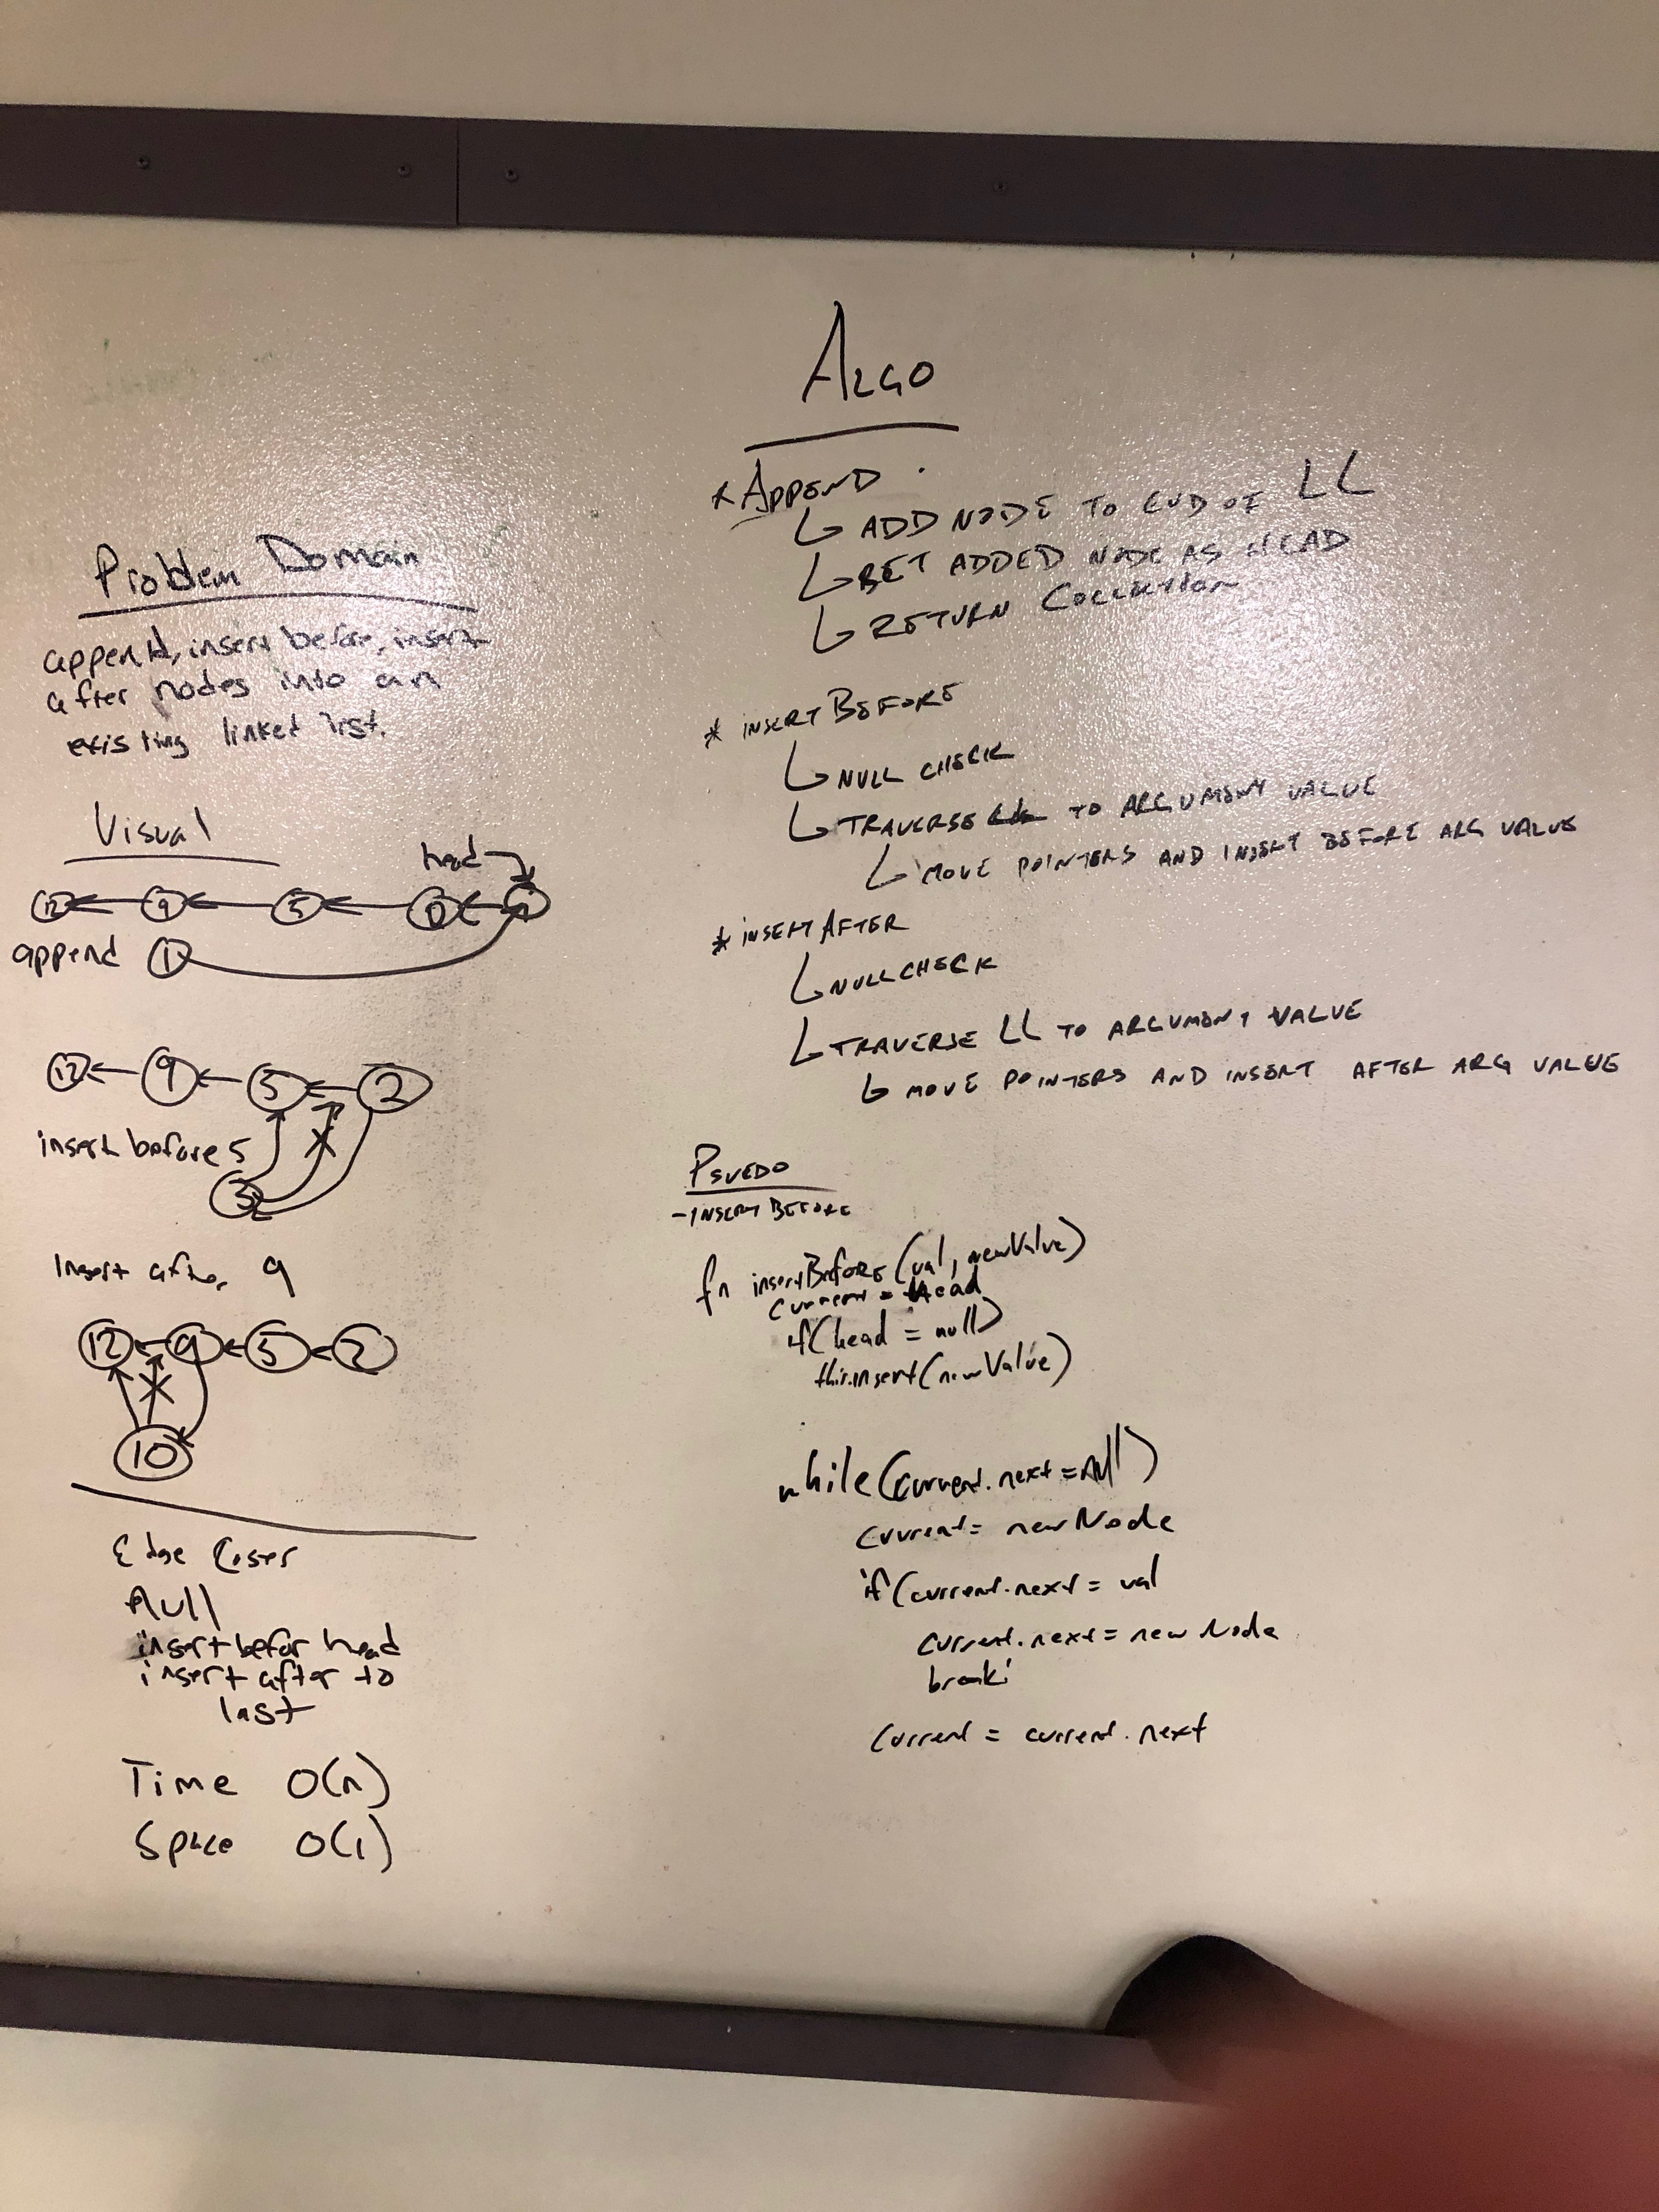 Problem Domain
append, insert before, insert
after nodes into an
existing linked list.
Visual
head
12 9 5
append 1
12 9 5 2
insert before 5
3
Insert after 9
12 9 5 2
10
Edge Cases
Null
insert befor head
insert after to
last
Time O(n)
Space O(1)
ALGO
* APPEND
ADD NODE TO END OF LL
SET ADDED NODE AS HEAD
RETURN COLLECTION
* INSERT BEFORE
NULL CHECK
TRAVERSE TO ARGUMENT VALUE
MOVE POINTERS AND INSERT BEFORE ARG VALUE
* INSERT AFTER
NULL CHECK
TRAVERSE LL TO ARGUMENT VALUE
MOVE POINTERS AND INSERT AFTER ARG VALUE
PSUEDO
- INSERT BEFORE
fn insertBefore(val, newValue)
current = Head
if(head = null)
this.insert(newValue)
while(current.next = null)
current = newNode
if(current.next = val
current.next = new Node
break;
current = current.next